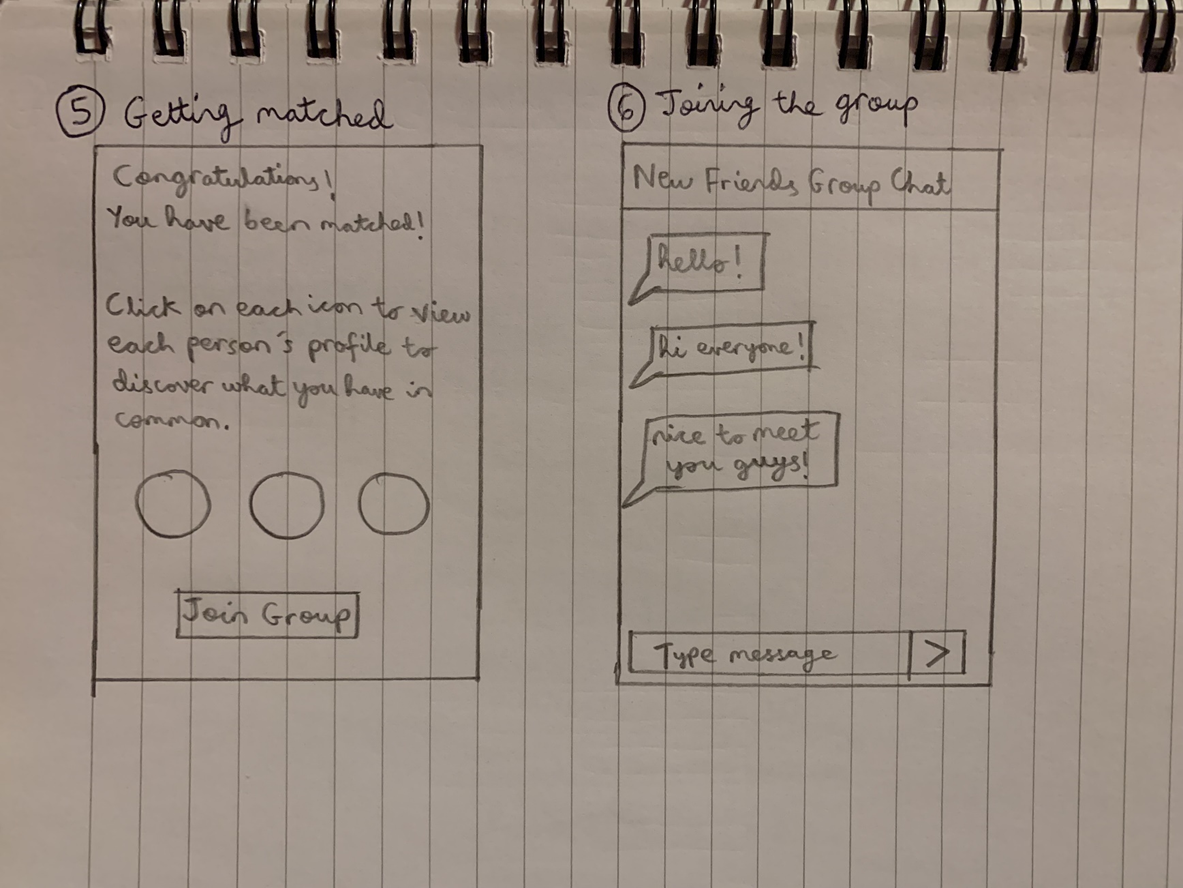 ⑤ Getting matched
Congratulations!
You have been matched!
Click on each icon to view
each person's profile to
discover what you have in
common.
Join Group
⑥ Joining the group
New Friends Group Chat
hello!
hi everyone!
nice to meet
you guys!
Type message >